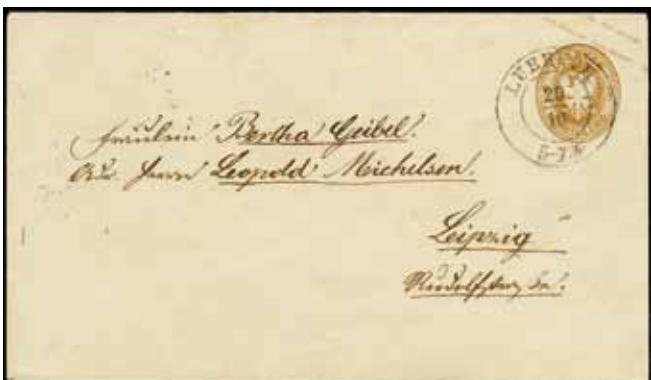 LUEBECK
20
10
5-7
Fräulein Bertha Geibel.
Adr. Herrn Leopold Michelsen.
Leipzig